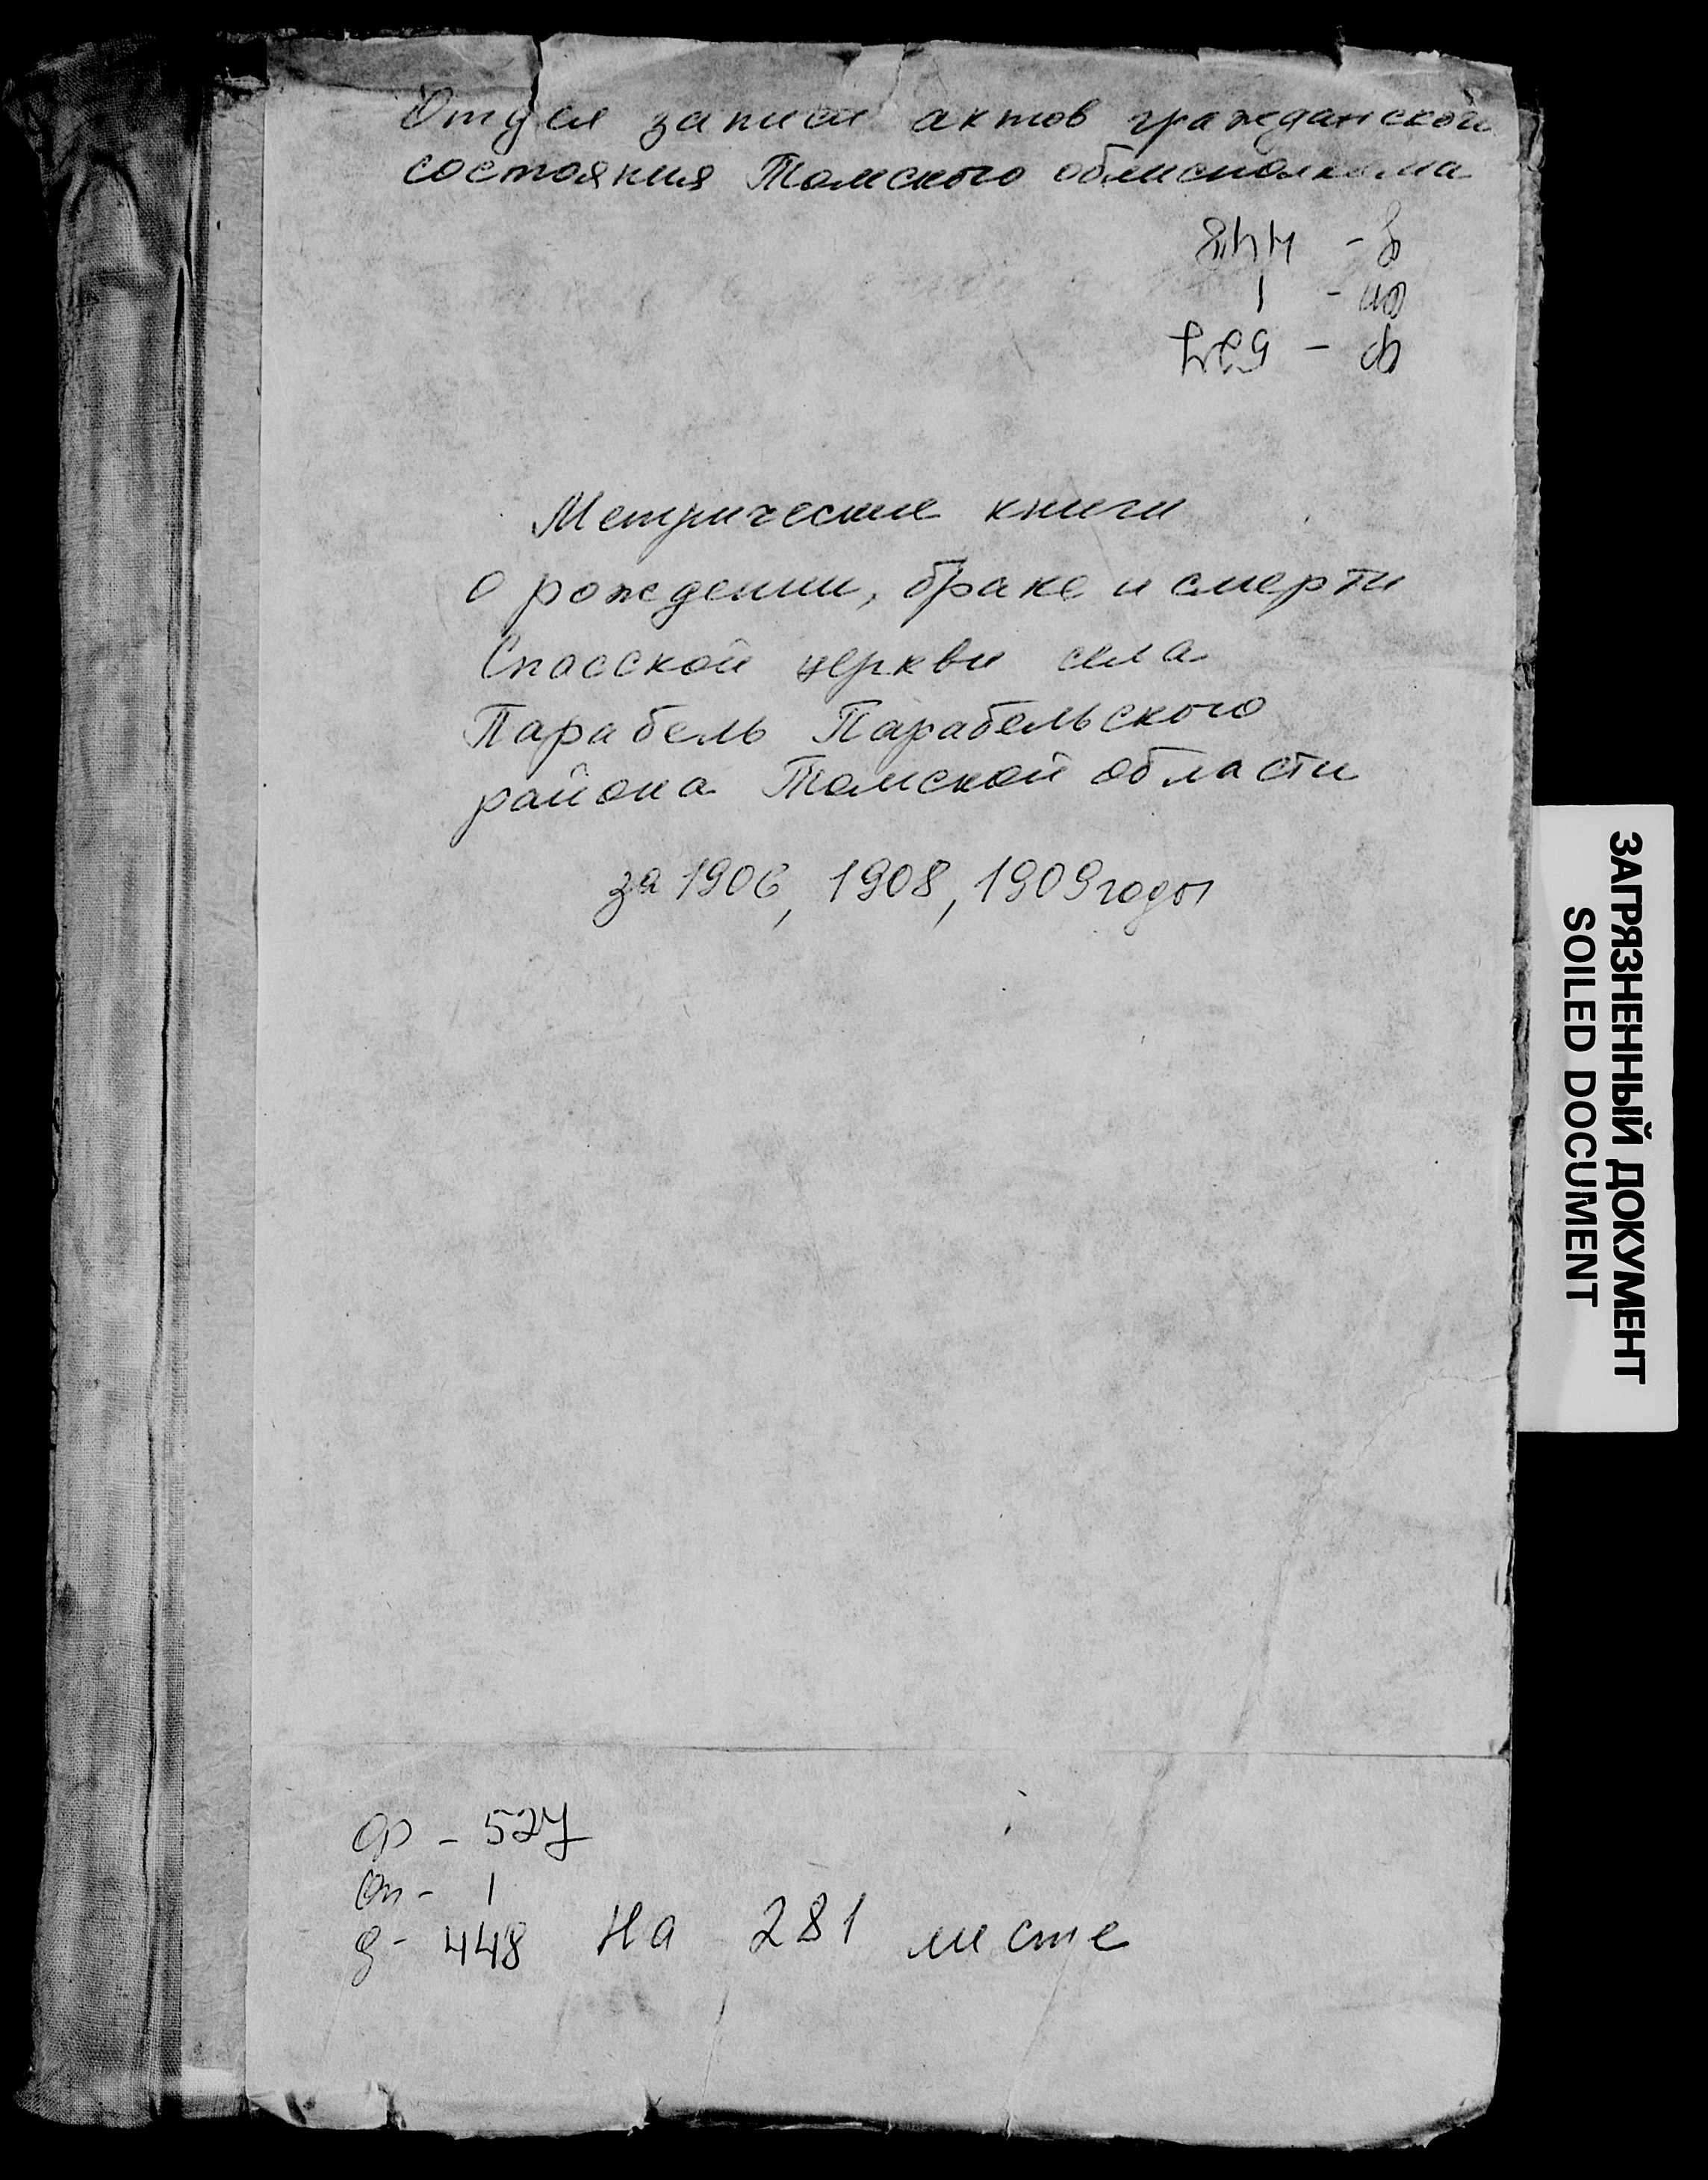 Отдел записи актов гражданского
состояния Томского облисполкома
ф - 527
оп - 1
д - 448
Метрические книги
о рождении, браке и смерти
Спасской церкви села
Парабель Парабельского
района Томской области
за 1906, 1908, 1909 годы
ф - 527
оп - 1
д - 448 На 281 листе
ЗАГРЯЗНЕННЫЙ ДОКУМЕНТ
SOILED DOCUMENT